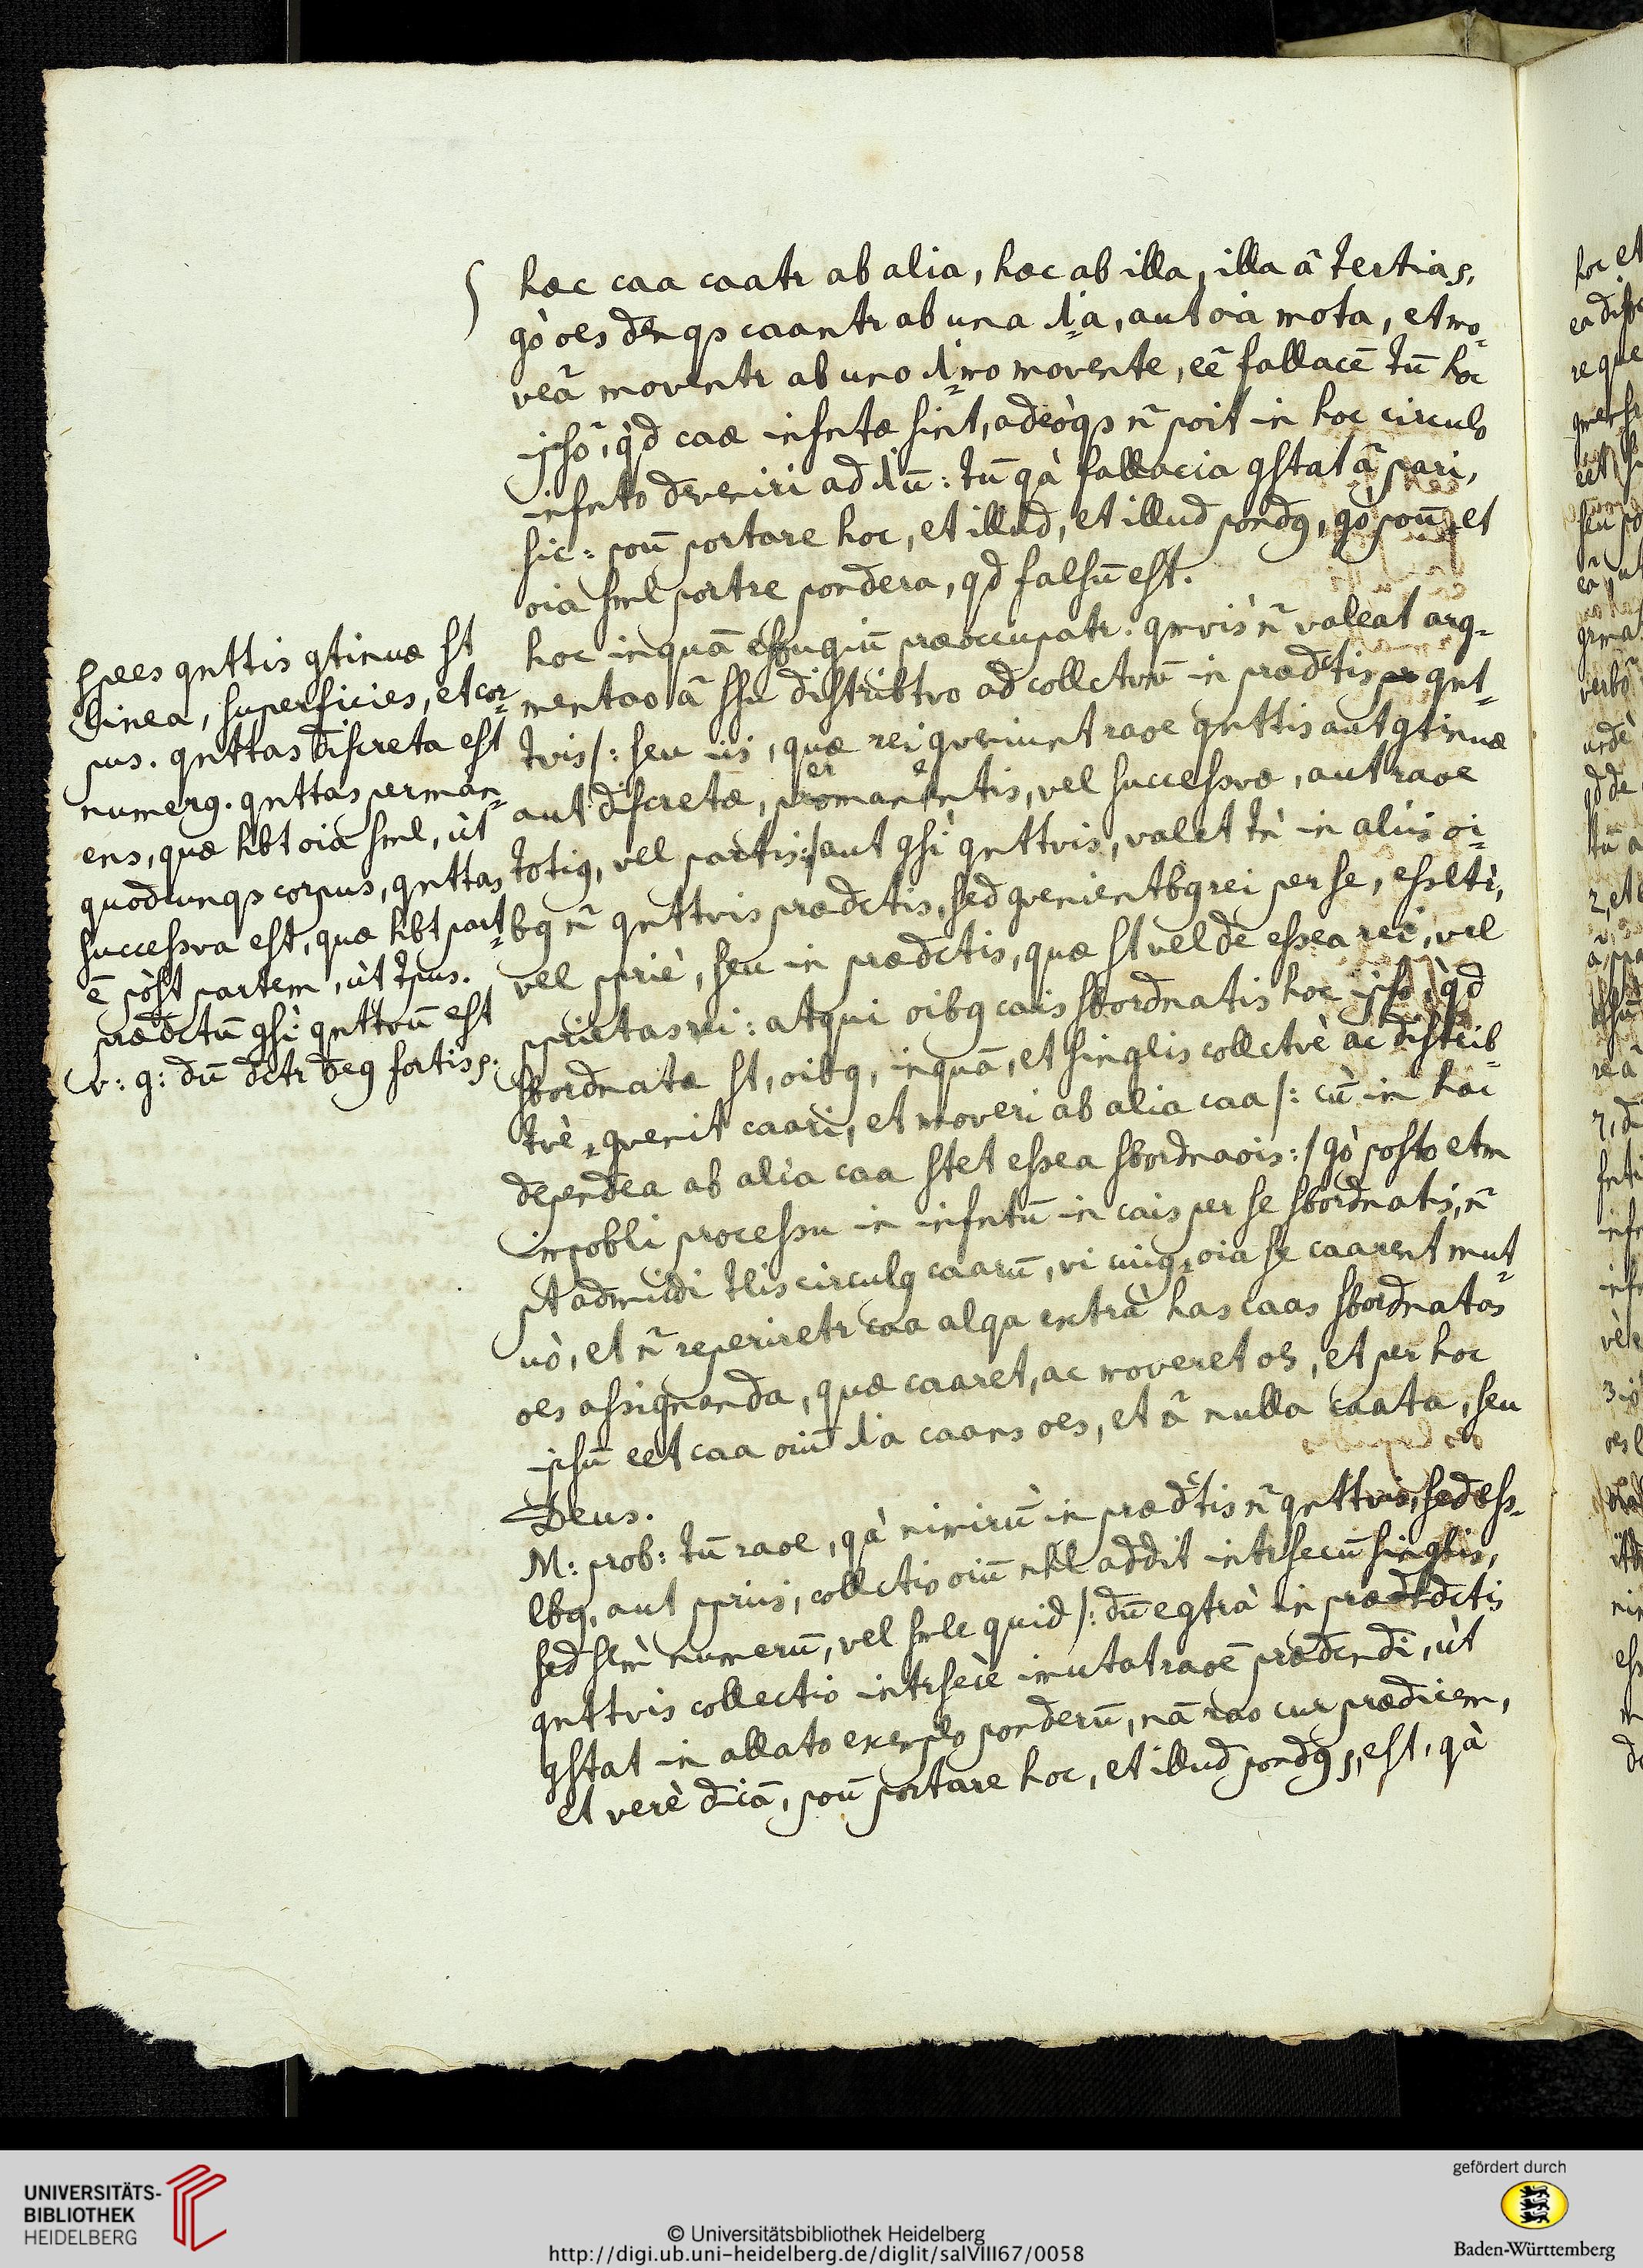 hæc caa caatr ab alia, hæc ab illa, illa ā tertia s,
gò oes denqs caantr ab una 1a, aut oia mota, et mo=
veã moventr ab uno 1mo movente, eē fallacē tū hoc
ipsō, q̀d caæ infntæ sint, adeòqs ñ poit in hoc circulo
infnto deveniri ad 1ū: tū qà fallacia gstat ā pari,
sic: poū portare hoc, et illud, et illud pondg, gò poū et
oia sml portre pondera, qd falsū est.
hoc inquā effugiū præoccupatr: qmvis ñ valeat arg=
mentao ā ssu distribtvo ad collctvū in prædctis qnt=
tvis /: seu iis, quæ rei gveniunt raoe qnttis aut gtinuæ
aut discretæ, permanentis, vel successvæ, aut raoe
totig, vel partis :/ aut gsì qnttvis, valet tǹ in aliis oi=
bg ñ qnttvis prædctis, sed gvenientbg rei per se, esseltr,
vel ppriè, seu in prædctis, quæ st vel de essea rei, vel
pprietas rei: atqui oibg cais sbordnatis hoc ipsō, q̀d
sbordnatæ st, oibg, inquā, et singlis collectvè ac distrib=
tvè, gvenit caari, et moveri ab alia caa /: cū in hac
dependea ab alia caa stet essea sbordnaois :/ gò posto etm
impobli processu in infntū in cais per se sbordnatis, ñ
pt admitti tlis circulg caarū, vi cuigs oia se caarent mut=
uò, et ñ reperiretr caa alqa extrà has caas sbordnatas
oes assignanda, quæ caaret, ac moveret oes, et per hoc
ipsū eet caa oiū 1a caans oes, et ā nulla caata, seu
Deus.
M: prob: tū raoe, qà nimirū in prædctis ñ qnttvis, sed ess=
lbg, aut ppriis, collectio oiū nhl addit intrsecū singlis,
sed slm̀ numerū, vel smle quid /: dū egtrà in prædctis
qnttvis collectio intrsecè imutat raoē prædcndi, ùt
gstat in allato exemplo ponderū, nā rao cur prædicem,
et verè dicā, poū portare hoc, et illud pondg s, est, qà
spees qnttis gtinuæ st
linea, superficies, et cor=
pus. qnttas discreta est
numerg. qnttas perman=
ens, quæ hbt oia sml, ùt
quodcunqs corpus, qnttas
successva est, quæ hbt part=
ē pòst partem, ùt tpus.
prædctū gsì qnttvū est
v: g: dū dctr Deg fortis s:
hoc et
UNIVERSITÄTS-
BIBLIOTHEK
HEIDELBERG
© Universitätsbibliothek Heidelberg
http://digi.ub.uni-heidelberg.de/diglit/salVIII67/0058
gefördert durch
Baden-Württemberg